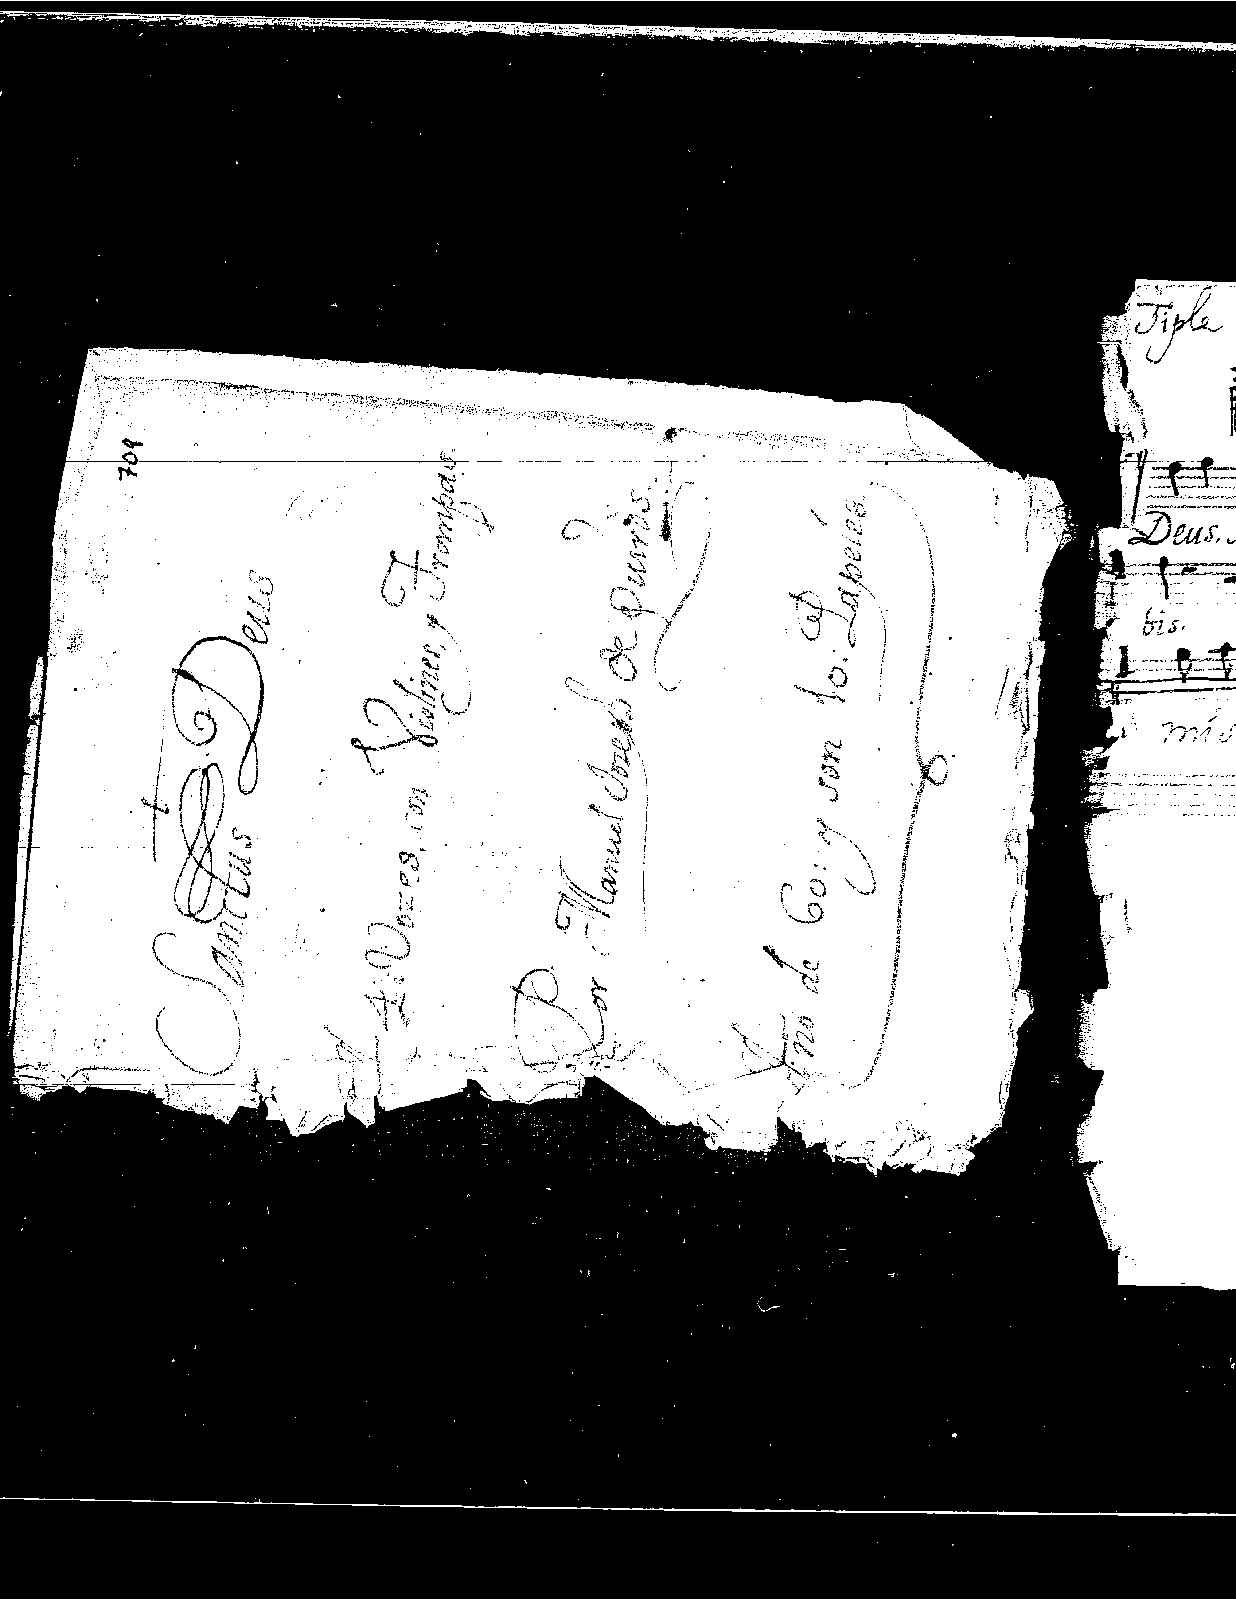 709
Sanctus Deus
A 4: Vozes, con Violines, y Trompas.
Por Manuel Joseph de Quiros.
Año de 60: y son 10: Papeles.
Tiple
Deus.
bis.
mis